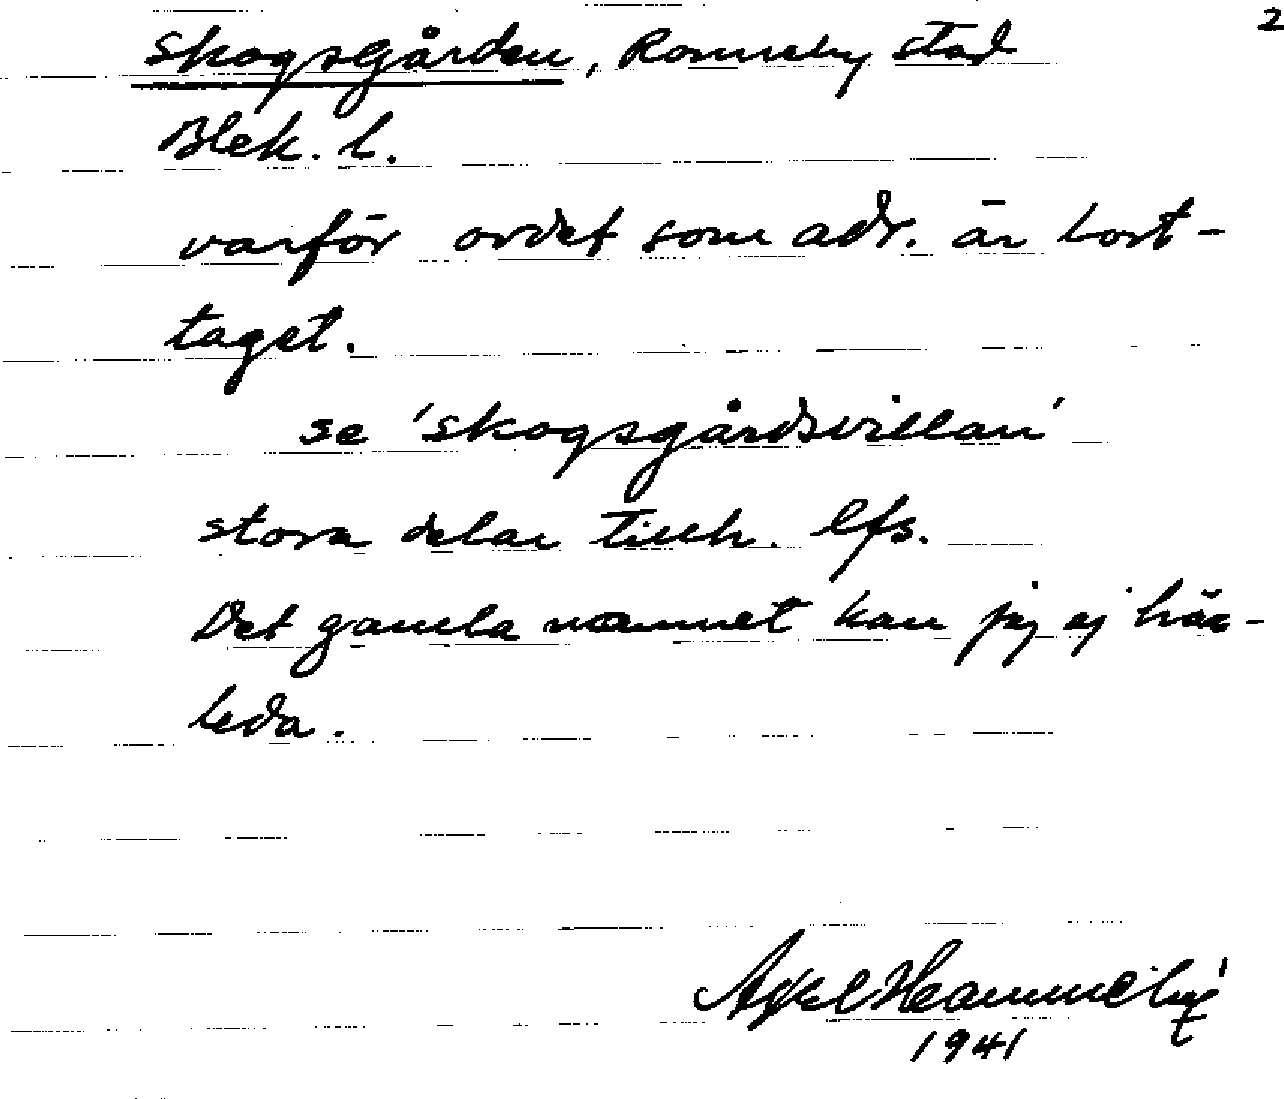 2
Skogsgården, Ronneby stad
Blek. l.
varför ordet som adr. är bort-
taget.
se 'Skogsgårdsvillan'
stora delar
Det gamla namnet kan jag ej här-
leda.
Axel
1941